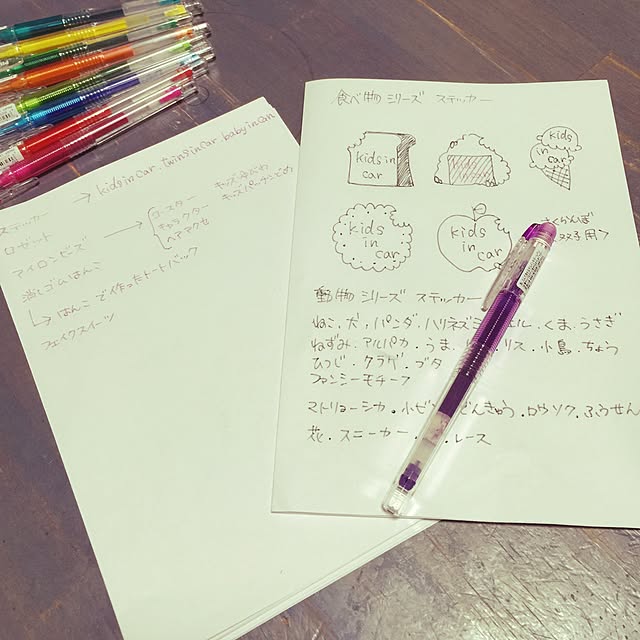 ステッカー → kids in car. twins in car. baby in can
ロゼット
アイロンビーズ → コースター
キャラクター
ヘアアクセ
キッズパッチンどめ
消しゴムはんこ
↳ はんこで作ったトートバック
フェイクスイーツ
食べ物シリーズ ステッカー
kids in car
kids in car
kids in car
kids in car
さくらんぼ
双子用?
動物シリーズ ステッカー
ねこ.犬.パンダ.ハリネズミ エル.くま.うさぎ
ねずみ.アルパカ.うま. リス.小鳥.ちょう
ひつじ.クラゲ.ブタ
ファンシーモチーフ
マトリョーシカ. ふうせん
花.スニーカー. レース